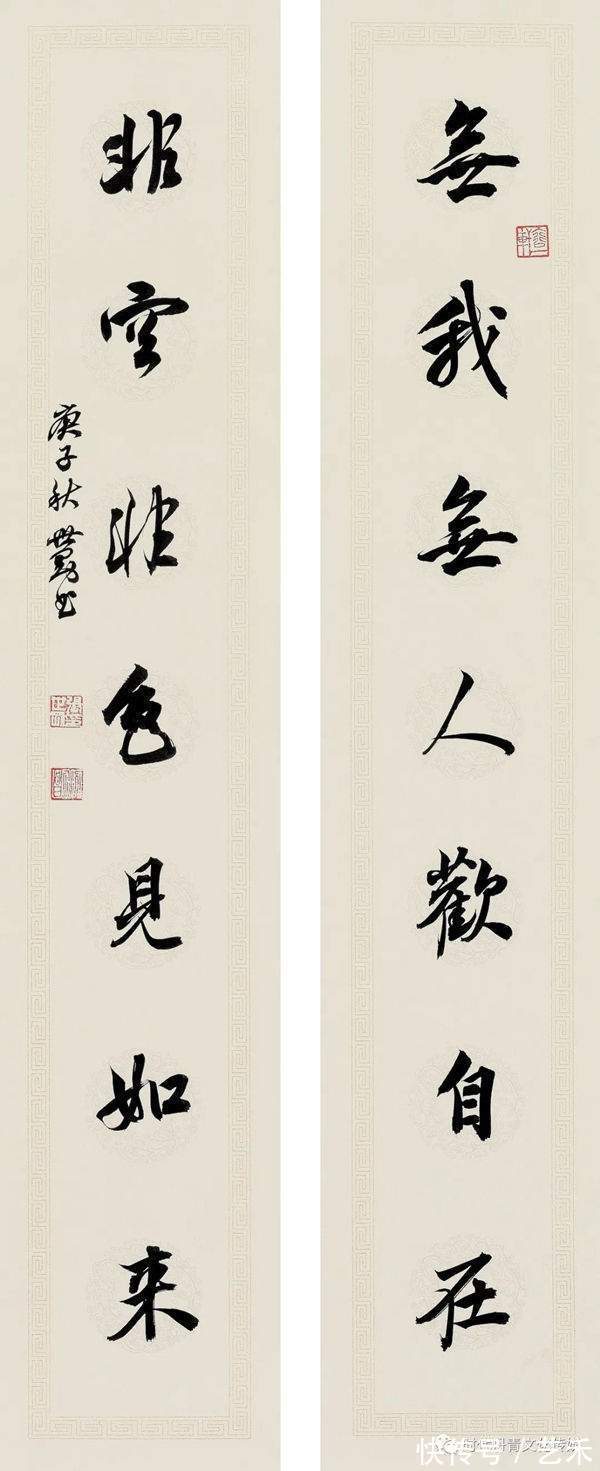 無我無人歡自在
非空非色見如来
庚子秋世書
快传号 / 艺禾